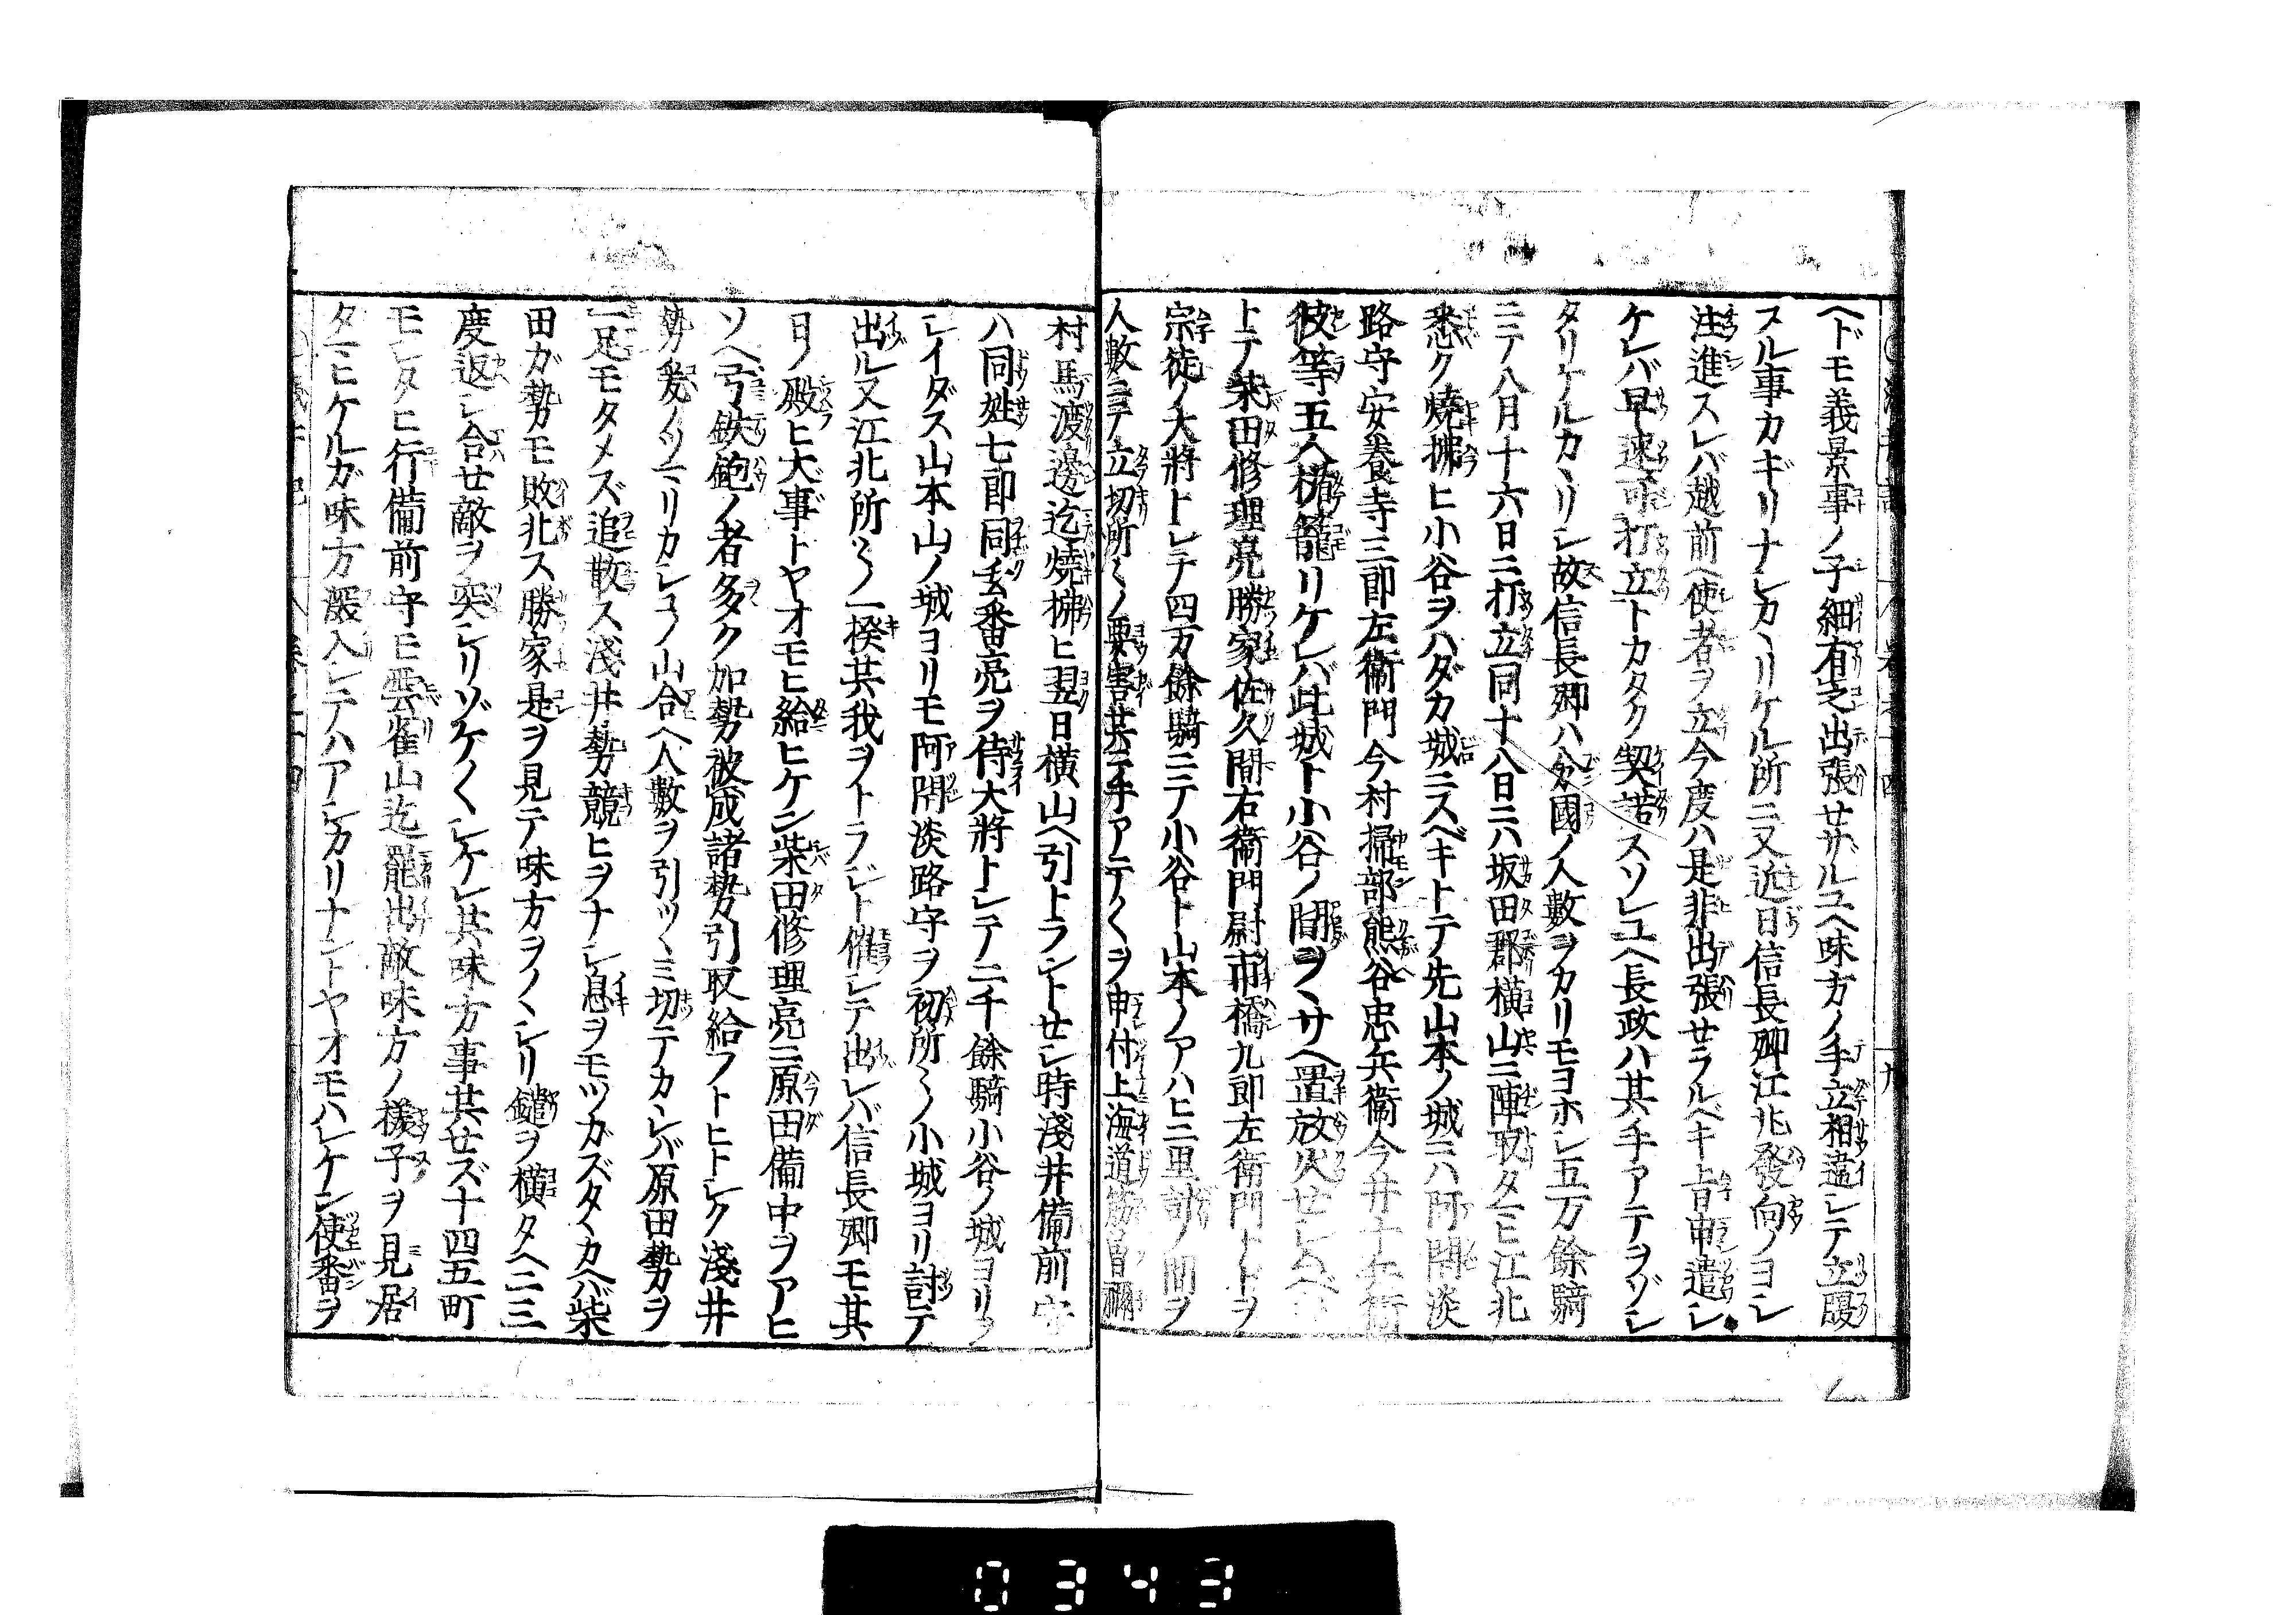 ヘドモ義景事ノ子細有之出張せサルユヘ味方ノ手立相違シテ立腹
スル事カギリナシカヽリケル所ニ又近日信長卿江北發向ノヨシ
注進スレバ越前ヘ使者ヲ立今度ハ是非出張せラルヘキ旨申遣シ
ケレバ早速可打立トカタク契諾スソレユヘ長政ハ其手アテヲゾシ
タリケルカヽリシ故信長卿ハ分國ノ人數ヲカリモヨホシ五万餘騎
ニテ八月十六日ニ打立同十八日ニハ坂田郡横山ニ陣取タマヒ江北
悉ク焼拂ヒ小谷ヲハダカ城ニスベキトテ先山本ノ城ニハ阿閉淡
路守安養寺三郎左衛門今村掃部熊谷忠兵衛今井十左衛
彼等五人楯籠リケレバ此城ト小谷ノ間ヲヽサヘ置放火せシムベ
トテ柴田修理亮勝家佐久間右衛門尉市橋九郎左衛門トトヲ
宗徒ノ大將トシテ四万餘騎ニテ小谷ト山本ノアハヒ二里計ノ間ヲ
人數ニテ立切所〱ノ要害共ニ手アテ〱ヲ申付上海道筋
村馬渡邊迄焼拂ヒ翌日横山ヘ引トラントせシ時淺井備前守
ハ同姓七郎同玄番亮ヲ侍大將トシテ二千餘騎小谷ノ城ヨリヲ
シイダス山本山ノ城ヨリモ阿閉淡路守ヲ初所〱ノ小城ヨリ討テ
出ル又江北所〱ノ一揆共我ヲトラジト催シテ出レバ信長卿モ其
日ノ殿ヒ大事トヤオモヒ給ヒケン柴田修理亮ニ原田備中ヲアヒ
ソヘ弓鉄鉋ノ者多タク加勢被成諸勢引取給フトヒトシク淺井
勢爰ノツマリカシコノ山合ヘ人數ヲ引ツヽミ切テカヽレバ原田勢カヲ
一足モタメズ追散ス淺井勢競ヒヲナシ息ヲモツガズタヽカヘバ柴
田ガ勢モ敗北ス勝家是ヲ見テ味方ヲノヽシリ鑓ヲ横タヘ二三
度返シ合せ敵ヲ突シリゾケ〱シケレ共味方事共せズ十四五町
モシタヒ行備前守モ雲雀山迄罷出敵味方ノ樣子ヲ見居
タマヒケルガ味方嚴入シテハアシカリナントヤオモハレケン使番ヲ
0343